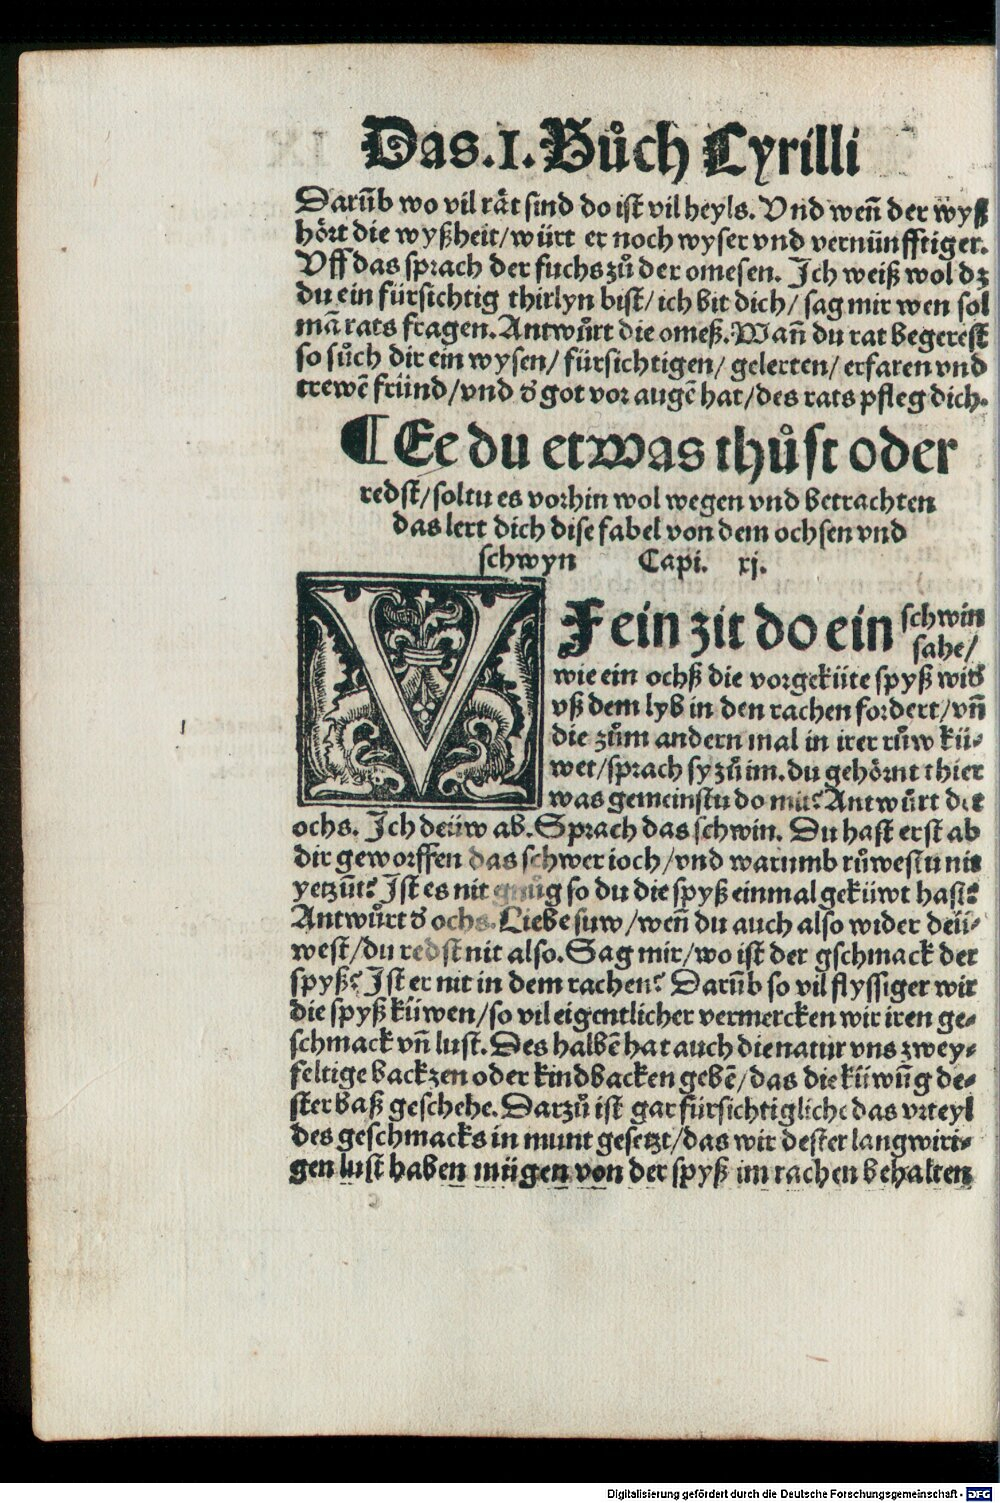 Das.I.Bůch Cyrilli
Darūb wo vil rät sind do ist vil heyls. Vnd weñ der wyß
hört die wyßheit/würt er noch wyser vnd vernünfftiger.
Vff das sprach der fuchs zů der omesen. Ich weiß wol dz
du ein fürsichtig thirlyn bist/ich bit dich/sag mir wen sol
mā rats fragen. Antwůrt die omeß. Wañ du rat begerest
so sůch dir ein wysen/fürsichtigen/gelerten/erfaren vnd
trewē fründ/vnd d' got vor augē hat/des rats pfleg dich.
¶Ee du etwas thůst oder
redst/soltu es vorhin wol wegen vnd betrachten
das lert dich dise fabel von dem ochsen vnd
schwyn Capi. xj.
VF ein zit do ein schwin
sahe/
wie ein ochß die vorgeküte spyß wid'
vß dem lyb in den rachen fordert/vñ
die zům andern mal in irer růw kü⸗
wet/sprach sy zů im. du gehörnt thier
was gemeinstu do mit? Antwůrt der
ochs. Ich deüw ab. Sprach das schwin. Du hast erst ab
dir geworffen das schwer ioch/vnd warumb růwestu nit
yetzūt? Ist es nit gnůg so du die spyß einmal geküwt hast?
Antwůrt d' ochs. Liebe suw/weñ du auch also wider deü⸗
west/du redst nit also. Sag mir/wo ist der gschmack der
spyß? Ist er nit in dem rachen? Darūb so vil flyssiger wir
die spyß küwen/so vil eigentlicher vermercken wir iren ge⸗
schmack vñ lust. Des halbē hat auch die natur vns zwey⸗
feltige backzen oder kindbacken gebē/das die küwūg de⸗
ster baß geschehe. Darzů ist gar fürsichtigliche das vrteyl
des geschmacks in munt gesetzt/das wir dester langwiri⸗
gen lust haben mügen von der spyß im rachen behalten
Digitalisierung gefördert durch die Deutsche Forschungsgemeinschaft - DFG